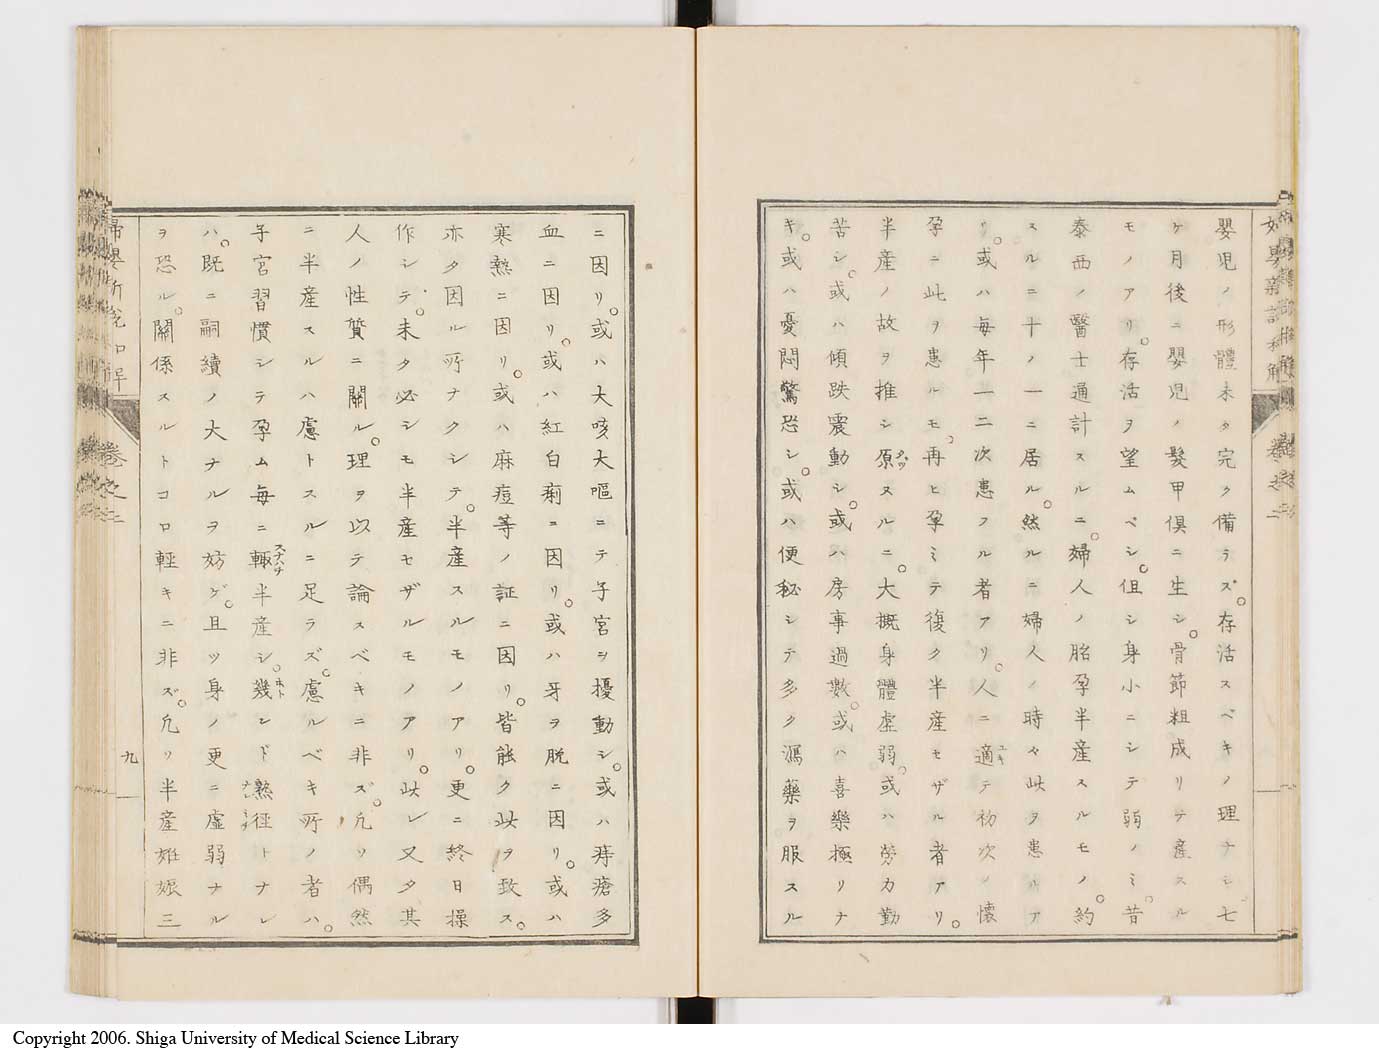 嬰児ノ形體未タ完ク備ラズ。存活スベキノ理ナシ七
ケ月後ニ嬰児ノ髪甲倶ニ生シ。骨節粗成リテ産スル
モノアリ。存活ヲ望ムベシ。但シ身小ニシテ弱ノミ。昔
泰西ノ醫士通計スルニ。婦人ノ胎孕半産スルモノ。約
スルニ十ノ一ニ居ル。然ルニ婦人ノ時々此ヲ患ルア
リ。或ハ毎年一二次患フル者アリ。人ニ適テ初次ノ懐
孕ニ此ヲ患ルモ。再ヒ孕ミテ復ク半産セザル者アリ。
半産ノ故ヲ推シ原ヌルニ。大概身體虚弱。或ハ労力勤
苦シ。或ハ傾跌震動シ。或ハ房事過數。或ハ喜樂極リナ
キ。或ハ憂悶驚恐シ。或ハ便秘シテ多ク瀉藥ヲ服スル
ニ因リ。或ハ大咳大嘔ニテ子宮ヲ擾動シ。或ハ痔瘡多
血ニ因リ。或ハ紅白痢ニ因リ。或ハ牙ヲ脱ニ因リ。或ハ
寒熱ニ因リ。或ハ麻痘等ノ証ニ因リ。皆能ク此ヲ致ス。
亦タ因ル所ナクシテ。半産スルモノアリ。更ニ終日操
作シテ。未タ必シモ半産セザルモノアリ。此レ又タ其
人ノ性質ニ關ル。理ヲ以テ論スベキニ非ズ。凢ソ偶然
ニ半産スルハ慮トスルニ足ラズ。慮ルベキ所ノ者ハ。
子宮習慣シテ孕ム毎ニ輙半産シ。幾ンド熟徑トナレ
ハ。既ニ嗣續ノ大ナルヲ妨ゲ。且ツ身ノ更ニ虚弱ナル
ヲ恐ル。關係スルトコロ輕キニ非ズ。凢リ半産妊娠三
巻之二
九